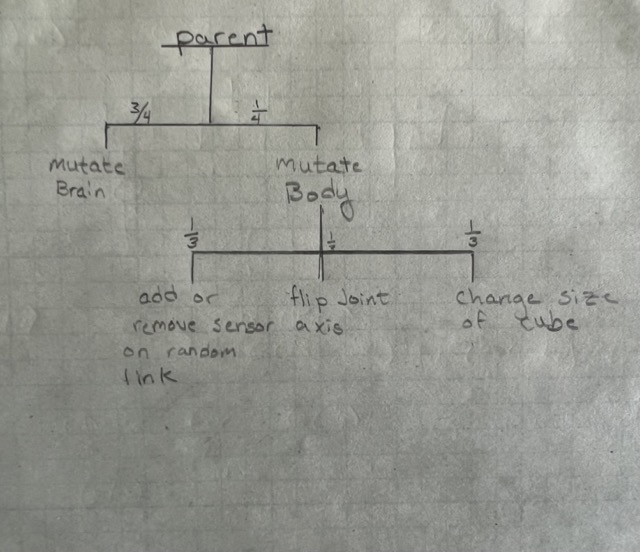 parent
3/4
1/4
mutate
Brain
mutate
Body
1/3
1/3
add or
remove sensor
on random
link
flip Joint
axis
change size
of cube